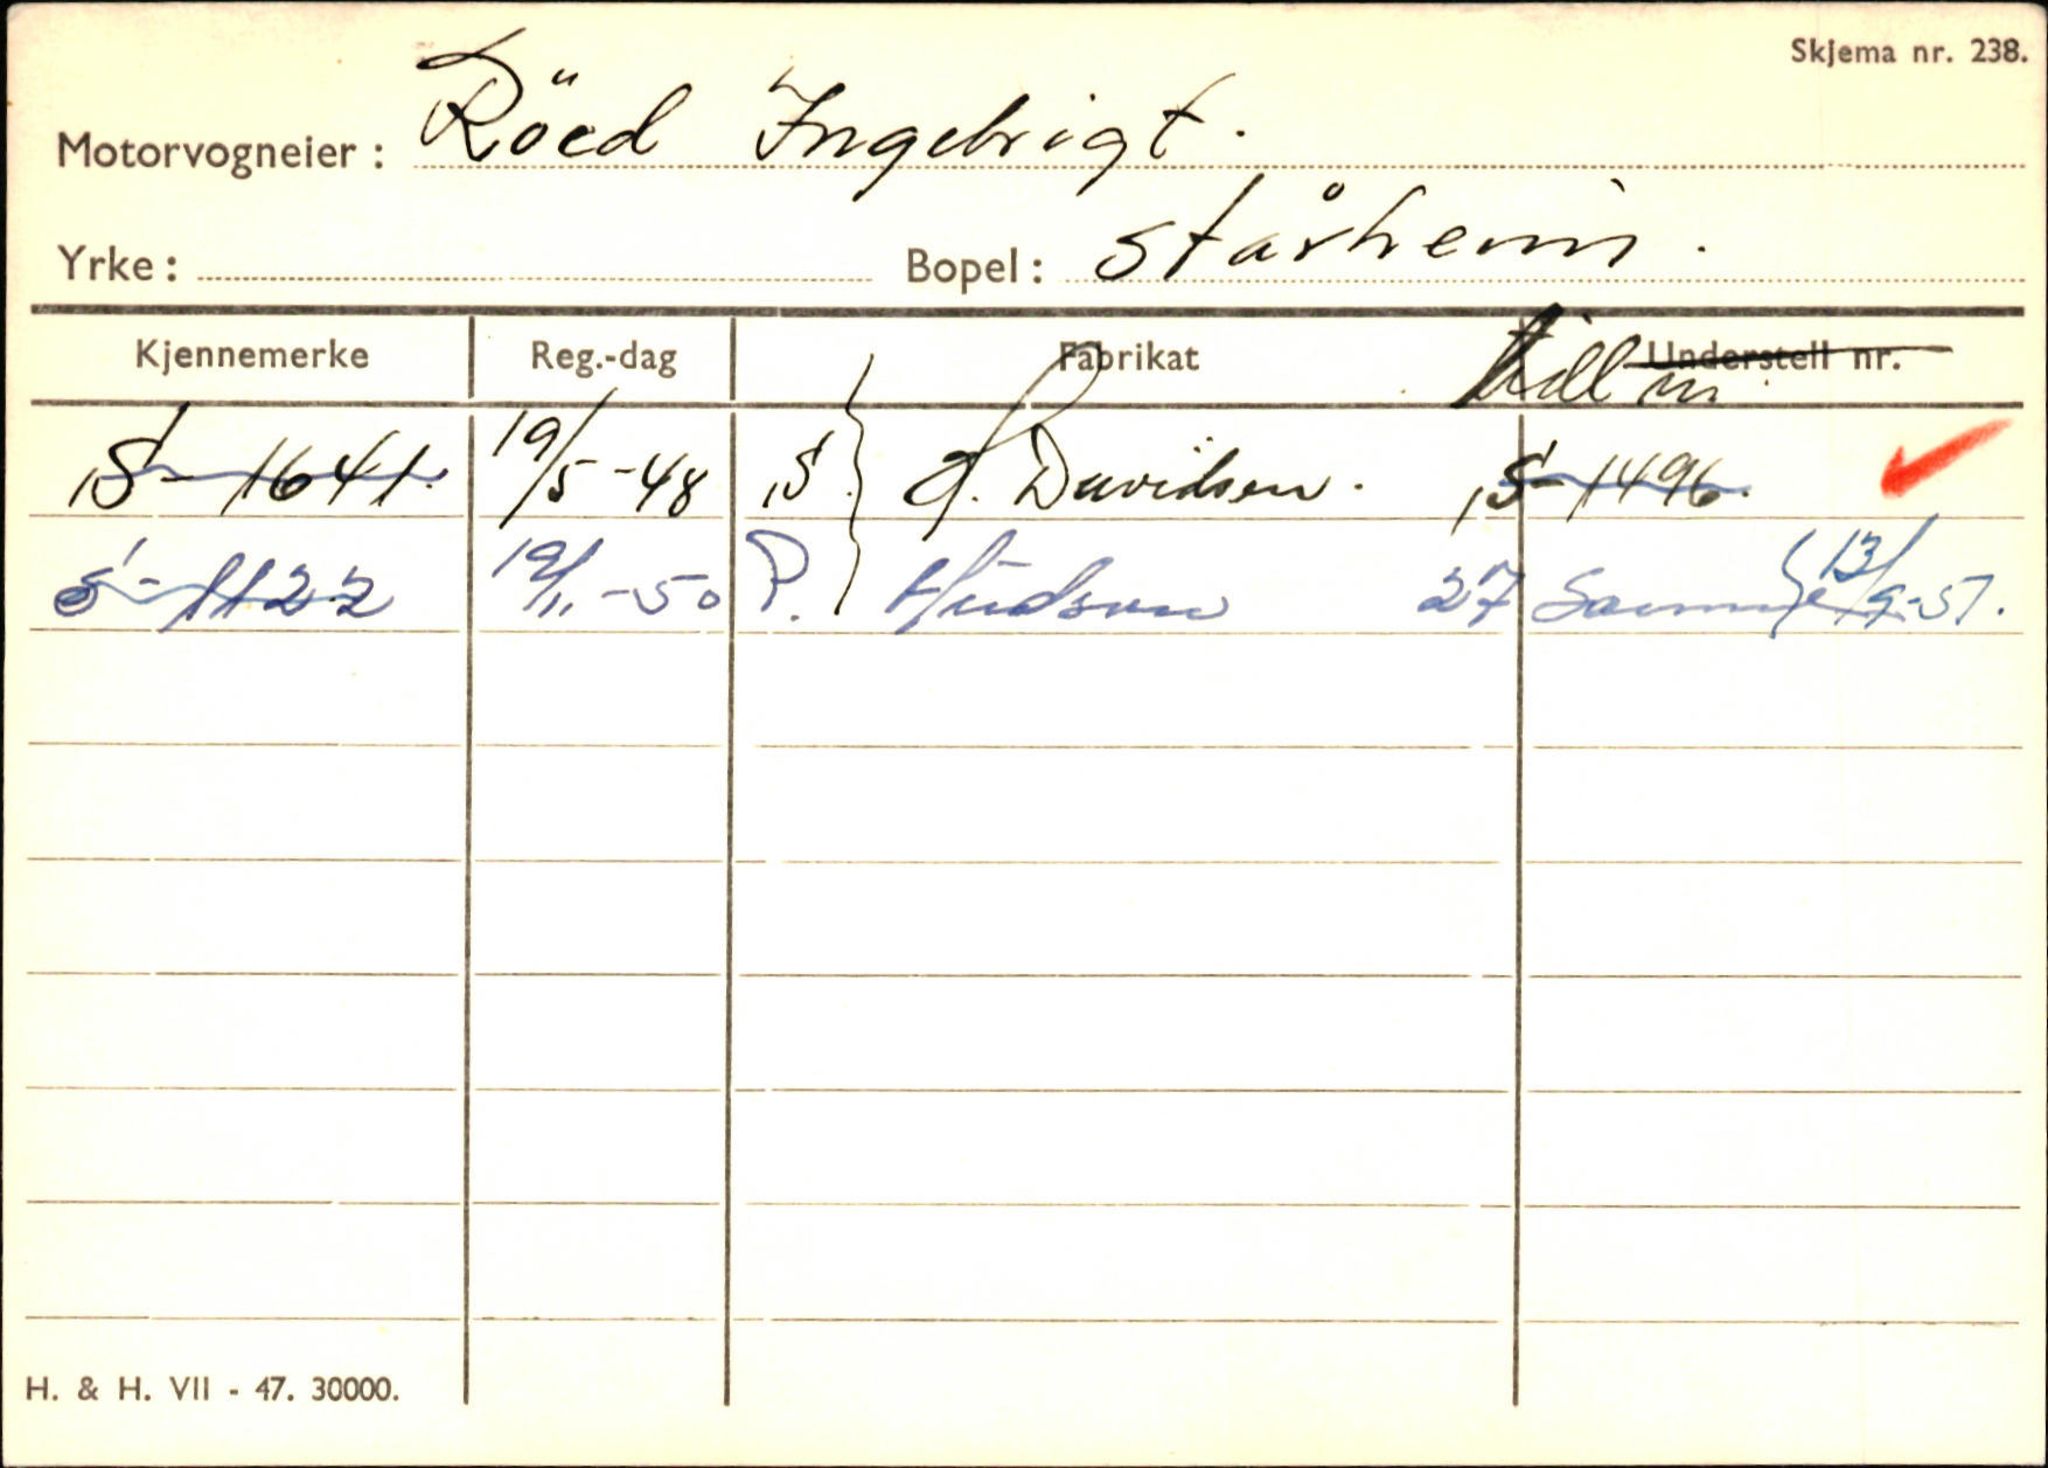 Skjema nr. 238.
Motorvogneier: Röed Ingebrigt.
Yrke: Bopel: Stårheim.
Kjennemerke Reg.-dag Fabrikat Understell nr.
S-1641. 19/5-48 S. H. Davidsen. S-1496.
S-1122 19/11-50 P. Hudson 27 Samme 13/9-51.
H. & H. VII - 47. 30000.